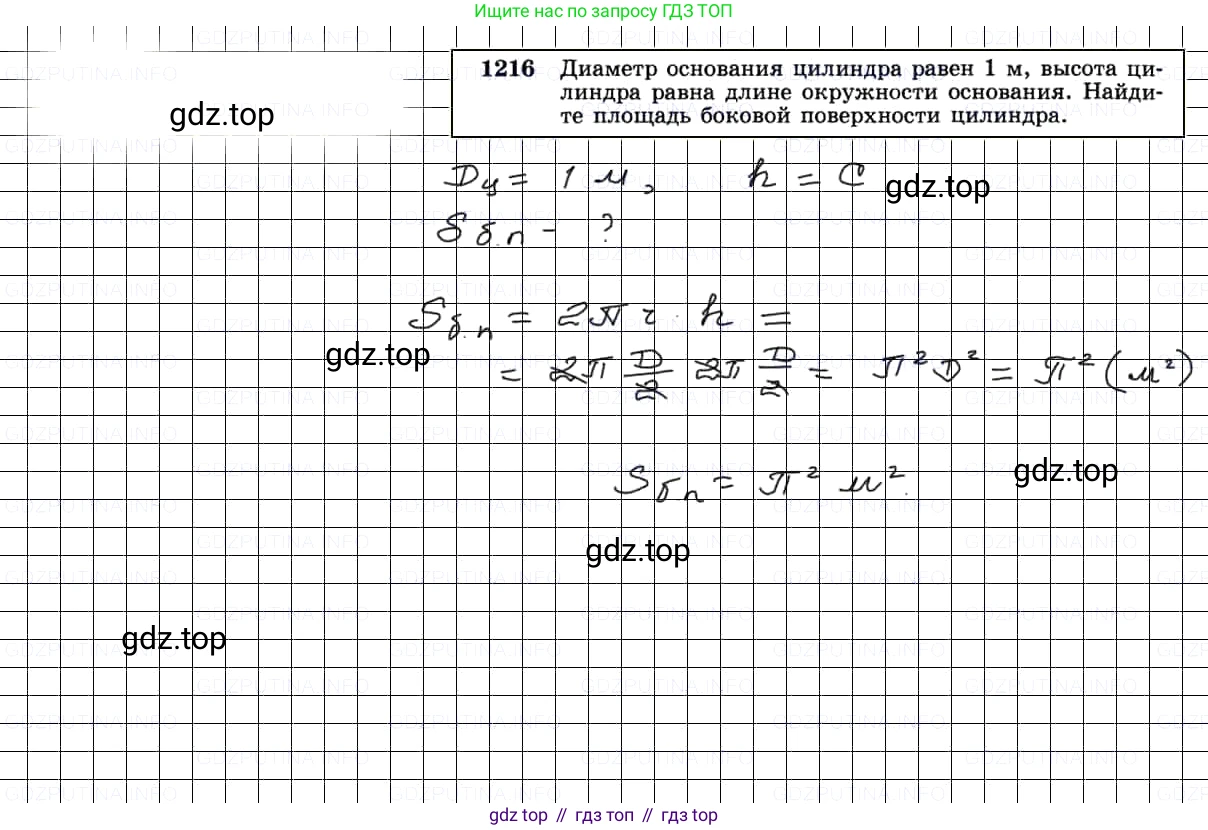 Ищите нас по запросу ГДЗ ТОП
1216 Диаметр основания цилиндра равен 1 м, высота ци-
линдра равна длине окружности основания. Найди-
те площадь боковой поверхности цилиндра.
gdz.top
Dц = 1 м, h = C
gdz.top
Sб.п - ?
Sб.п = 2πr · h =
gdz.top
= 2π D/2 · 2π D/2 = π²D² = π² (м²)
Sб.п = π² м².
gdz.top
gdz.top
gdz.top
gdz top // гдз топ // gdz top
GDZPUTINA.INFO